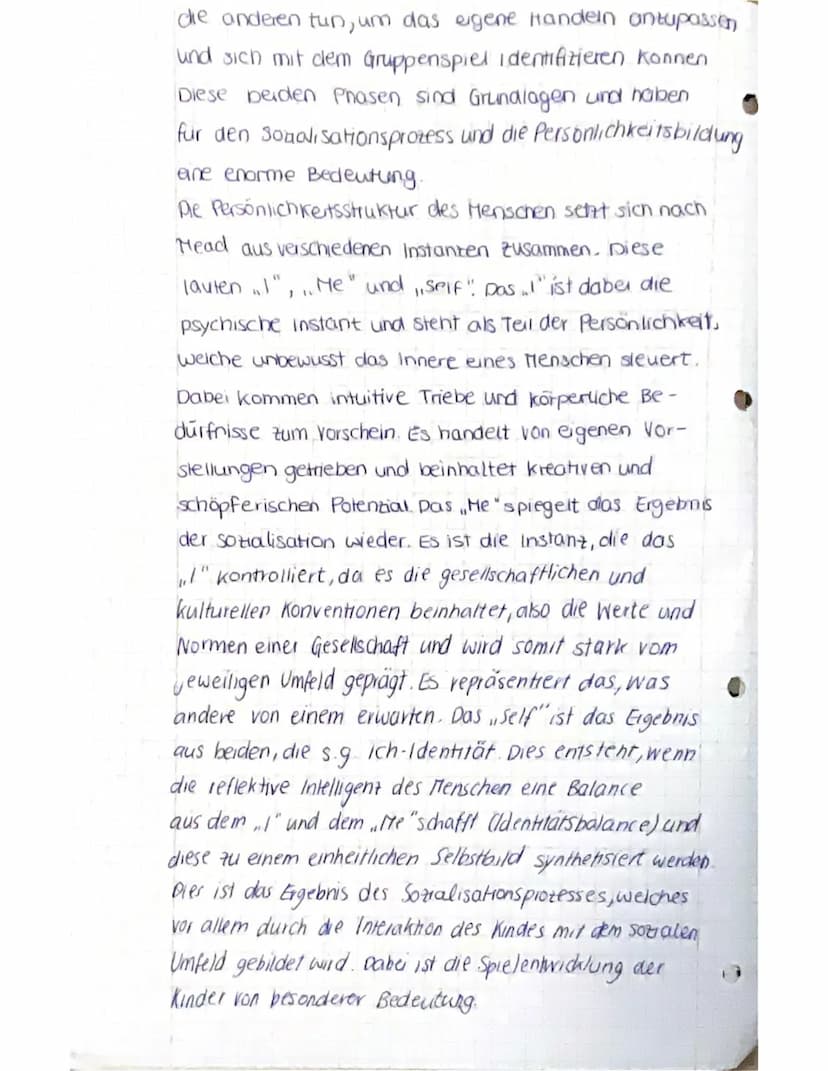 die anderen tun, um das eigene Handeln anzupassen
und sich mit dem Gruppenspiel identifizieren können
Diese beiden Phasen sind Grundlagen und haben
für den Sozialisationsprozess und die Persönlichkeitsbildung
eine enorme Bedeutung.
Die Persönlichkeitsstruktur des Menschen setzt sich nach
Mead aus verschiedenen Instanzen zusammen. Diese
lauten „I", „Me" und „self". Das „I" ist dabei die
psychische Instanz und steht als Teil der Persönlichkeit,
welche unbewusst das Innere eines Menschen steuert.
Dabei kommen intuitive Triebe und körperliche Be-
dürfnisse zum Vorschein. Es handelt von eigenen Vor-
stellungen getrieben und beinhaltet kreativen und
schöpferischen Potenzial. Das „Me" spiegelt das Ergebnis
der Sozialisation wieder. Es ist die Instanz, die das
„I" kontrolliert, da es die gesellschaftlichen und
kulturellen Konventionen beinhaltet, also die Werte und
Normen einer Gesellschaft und wird somit stark vom
jeweiligen Umfeld geprägt. Es repräsentiert das, was
andere von einem erwarten. Das „self" ist das Ergebnis
aus beiden, die s.g. ich-Identität. Dies entsteht, wenn
die reflektive Intelligenz des Menschen eine Balance
aus dem „I" und dem „Me" schafft (Identitätsbalance) und
diese zu einem einheitlichen Selbstbild synthetisiert werden.
Dies ist das Ergebnis des Sozialisationsprozesses, welches
vor allem durch die Interaktion des Kindes mit dem sozialen
Umfeld gebildet wird. Dabei ist die Spielentwicklung der
Kinder von besonderer Bedeutung.